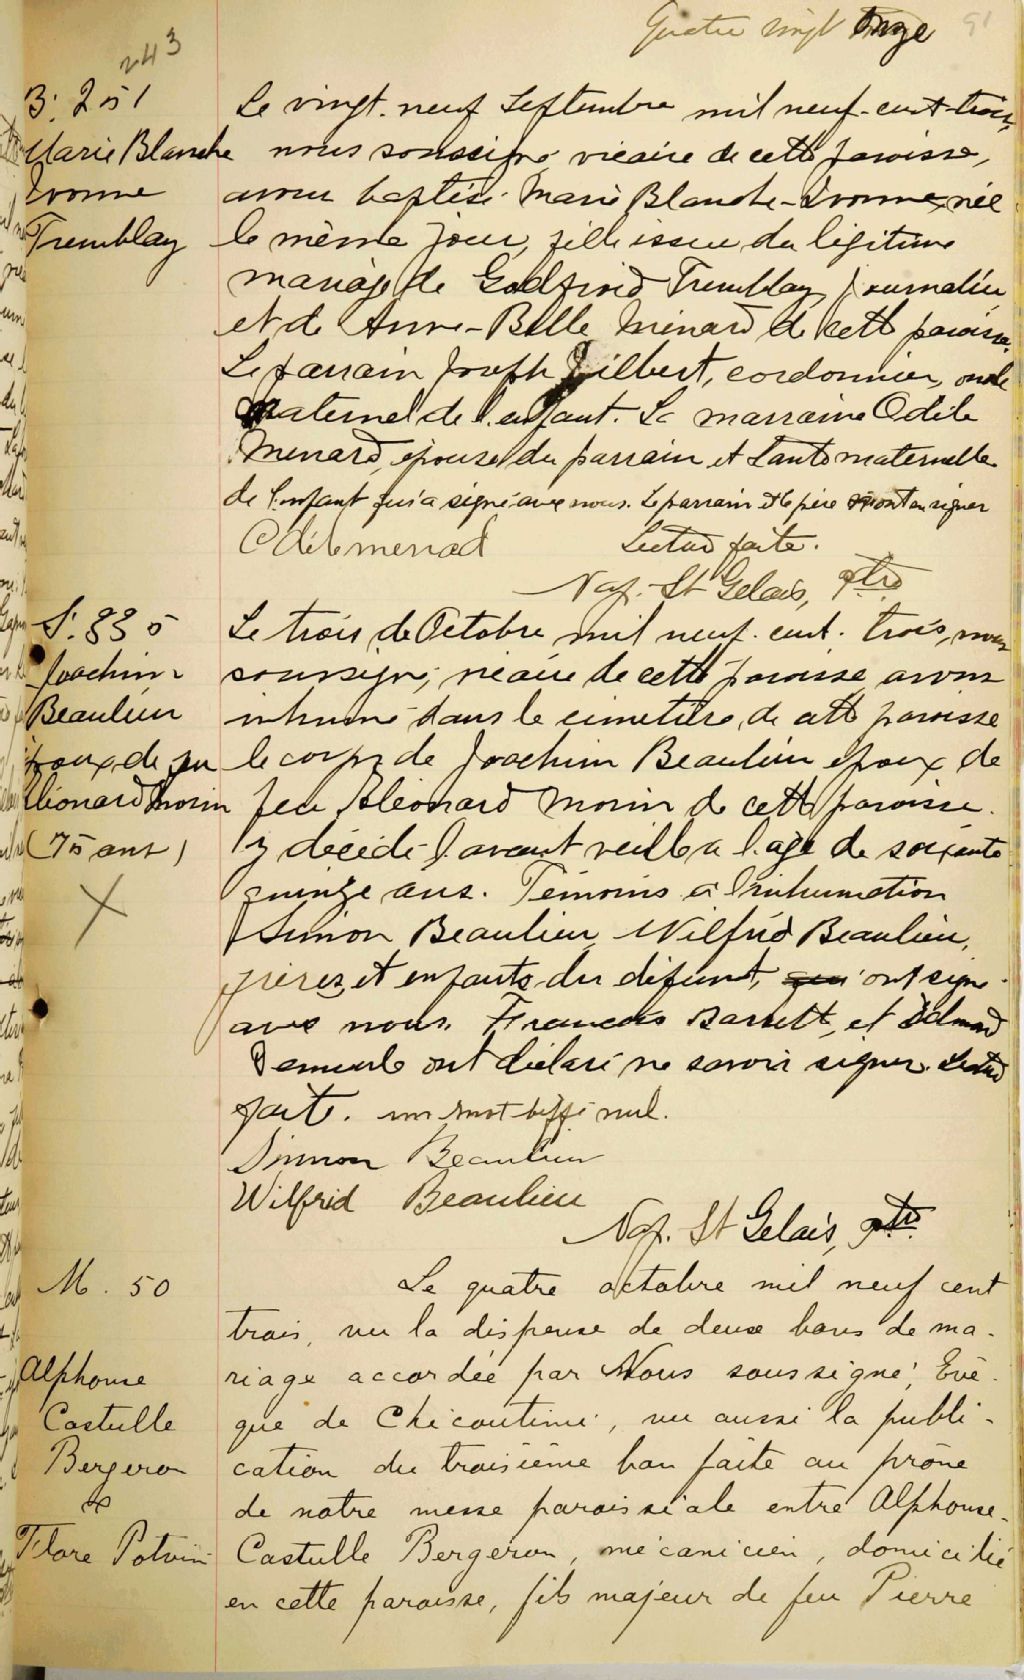 Quatre vingt onze 91
243
B. 251
Marie Blanche
Ivonne
Tremblay
Le vingt-neuf Septembre mil neuf-cent-trois,
nous soussigné vicaire de cette paroisse,
avons baptisé Marie Blanche-Ivonne, née
le même jour, fille issue du légitime
mariage de Godfroid Tremblay journalier
et de Anne-Belle Ménard de cette paroisse.
Le parrain Joseph Gilbert, cordonnier, oncle
maternel de l'enfant. La marraine Odile
Menard, épouse du parrain et tante maternelle
de l'enfant qui a signé avec nous. Le parrain et le père n'ont su signer
Odile menard Lecture faite.
Nap. St Gelais, Ptre
S. 335
Joachim
Beaulieu
époux de feu
Eléonard Morin
(75 ans)
Le trois de Octobre mil neuf-cent-trois, nous
soussigné, vicaire de cette paroisse avons
inhumé dans le cimetière de cette paroisse
le corps de Joachim Beaulieu époux de
feu Eléonard Morin de cette paroisse.
y décédé l'avant veille a l'age de soixante
quinze ans. Témoins à l'inhumation
Simon Beaulieu, Wilfrid Beaulieu,
frères et enfants du défunt, qui ont signé
avec nous. Francois Barrett, et Edmond
ont déclaré ne savoir signer. Lecture
faite. un mot biffé nul.
Simmon Beaulieu
Wilfrid Beaulieu
Nap. St Gelais, ptre
M. 50
Alphonse
Castulle
Bergeron
&
Flore Potvin
Le quatre octobre mil neuf cent
trois, vu la dispense de deux bans de ma-
riage accordée par Nous soussigné, Evê-
que de Chicoutimi, vu aussi la publi-
cation du troisième ban faite au prône
de notre messe paroissiale entre Alphonse-
Castulle Bergeron, mécanicien, domicilié
en cette paroisse, fils majeur de feu Pierre